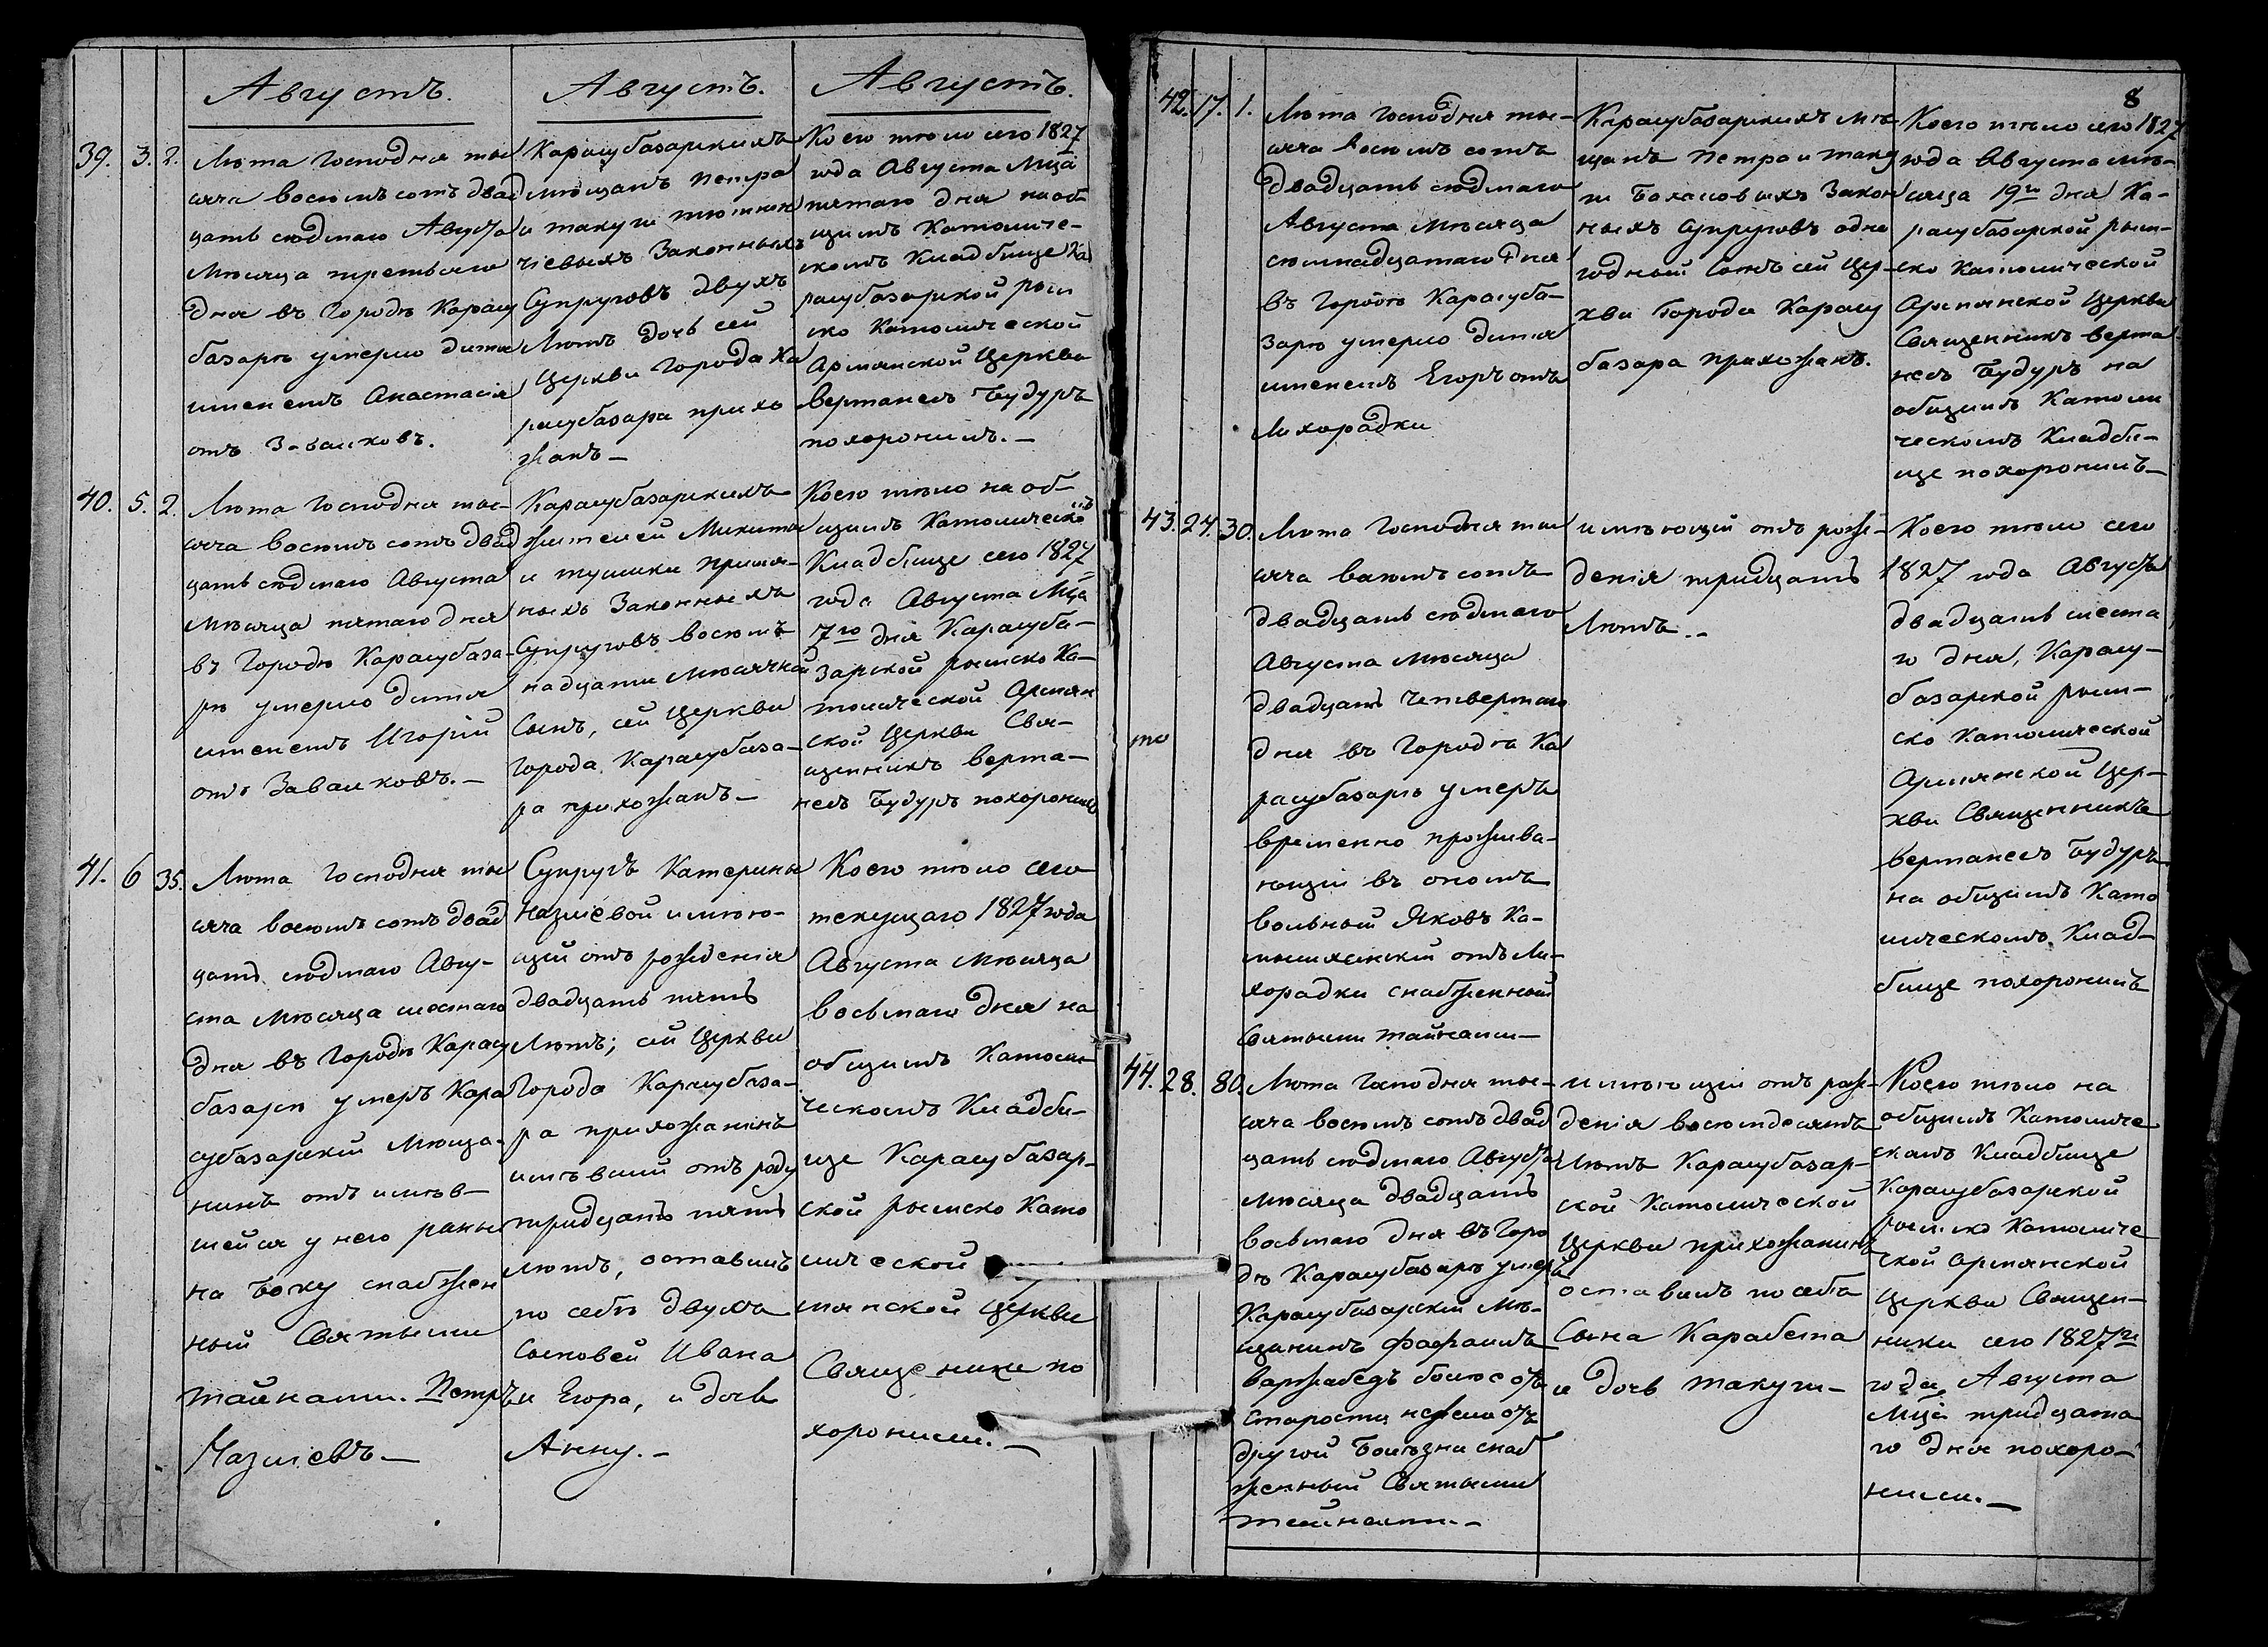 Августъ.
39. 3. 2.
Лѣта Господня ты
сяча восемъ сотъ двад
цать седмаго Августа
Мѣсяца третьяго
дня въ Городѣ Карасу
базарѣ умерло дитя
именемъ Анастасія
отъ Завалковъ.
Августъ.
Карасубазарскихъ
мѣщанъ Петра
и такуги
чіевыхъ Законныхъ
Супруговъ двухъ
Лѣтъ дочь сей
Церкви Города Ка
расубазара прихо
жанъ —
Августъ.
Коего тѣло сего 1827
года Августа Мца
пятаго дня на об
щимъ Католиче-
скомъ Кладбище Ка
расубазарской рим
ско Католической
Армянской Церкви
Вертанесъ Будуръ
похоронилъ. —
40. 5. 2.
Лѣта Господня ты-
сяча восемъ сотъ двад
цать седмаго Августа
Мѣсяца пятаго дня
въ Городѣ Карасубаза-
рѣ умерло дитя
именемъ Игорій
отъ Завалковъ. —
Карасубазарскихъ
жителей Микита
и тушики
ныхъ Законныхъ
Супруговъ восемъ
надцати мѣсячной
Сынъ, сей Церкви
Города Карасубаза-
ра прихожанъ —
Коего тѣло на об-
щимъ Католическомъ
Кладбище сего 1827
года Августа Мца
7го дня Карасуба-
зарской римско Ка-
толической Армян
ской Церкви Свя-
щенникъ Верта-
несъ Будуръ похоронилъ
41. 6 35.
Лѣта Господня ты
сяча восемъ сотъ двад
цать седмаго Авгу-
ста Мѣсяца шестаго
дня въ Городѣ Карасу
базарѣ умеръ Кара
субазарскій мѣща-
нинъ отъ имѣв-
шейся у него раны
на боку снабжен
ный Святыми
тайнами. Петръ
Назліевъ —
Супругъ Катерины
Назліевой имѣю-
щей отъ рожденія
двадцать пять
Лѣтъ; сей Церкви
Города Карасубаза-
ра прихожанинъ
имѣвшій отъ роду
тридцать пять
лѣтъ, оставилъ
по себѣ двухъ
Сыновей Ивана
и Егора, и дочь
Анну. —
Коего тѣло сего
текущаго 1827 года
Августа мѣсяца
восьмаго дня на
общимъ Католи-
ческомъ Кладби-
ще Карасубазар-
ской римско Като
лической
мянской Церкви
Священики по
хоронили. —
8
42. 17. 1.
Лѣта Господня ты-
сяча восемъ сотъ
двадцать седмаго
Августа Мѣсяца
семнадцатаго дня
въ Городѣ Карасуба-
зарѣ умерло дитя
именемъ Егоръ отъ
Лихорадки
Карасубазарскихъ мѣ-
щанъ Петра и таку
ги Баласовыхъ Закон
ныхъ Супруговъ одно
годный Сынъ сей Цер-
кви Города Карасу
базара прихожанъ.
Коего тѣло сего 1827
года Августа мѣ-
сяца 19го дня Ка-
расубазарской рим-
ско Католической
Армянской Церкви
Священникъ Верта
несъ Будуръ на
общимъ Католи
ческомъ Кладби-
ще похоронилъ —
43. 24. 30.
Лѣта Господня ты
сяча восемъ сотъ
двадцать седмаго
Августа Мѣсяца
двадцать четвертаго
дня въ Городѣ Ка
расубазарѣ умеръ
временно прожива-
ющій въ ономъ
вольный Яковъ Ка-
отъ Ли-
хорадки снабженный
Святыми тайнами —
имѣющій отъ рож-
денія тридцать
Лѣтъ. —
Коего тѣло сего
1827 года Августа
двадцать шеста
го дня, Карасу-
базарской рим-
ско Католической
Армянской Цер-
кви Священникъ
Вертанесъ Будуръ
на общимъ Като
лическомъ Клад-
бище похоронилъ
то
44. 28. 80.
Лѣта Господня ты-
сяча восемъ сотъ двад
цать седмаго Августа
мѣсяца двадцать
восьмаго дня въ Горо
дѣ Карасубазарѣ умеръ
Карасубазарскій Мѣ-
щанинъ
болѣе отъ
старости нежели отъ
другой болѣзни снаб
женный Святыми
тайнами. —
имѣющій отъ рож-
денія восемдесятъ
Лѣтъ Карасубазар-
ской Католической
Церкви прихожанинъ
оставилъ по себѣ
Сына Карабета
и дочь такуги —
Коего тѣло на
общимъ Католиче
скомъ Кладбище
Карасубазарской
римско Католиче
ской Армянской
Церкви Священ-
ники сего 1827го
года, Августа
Мца тридцата
го дня похоро-
нили. —